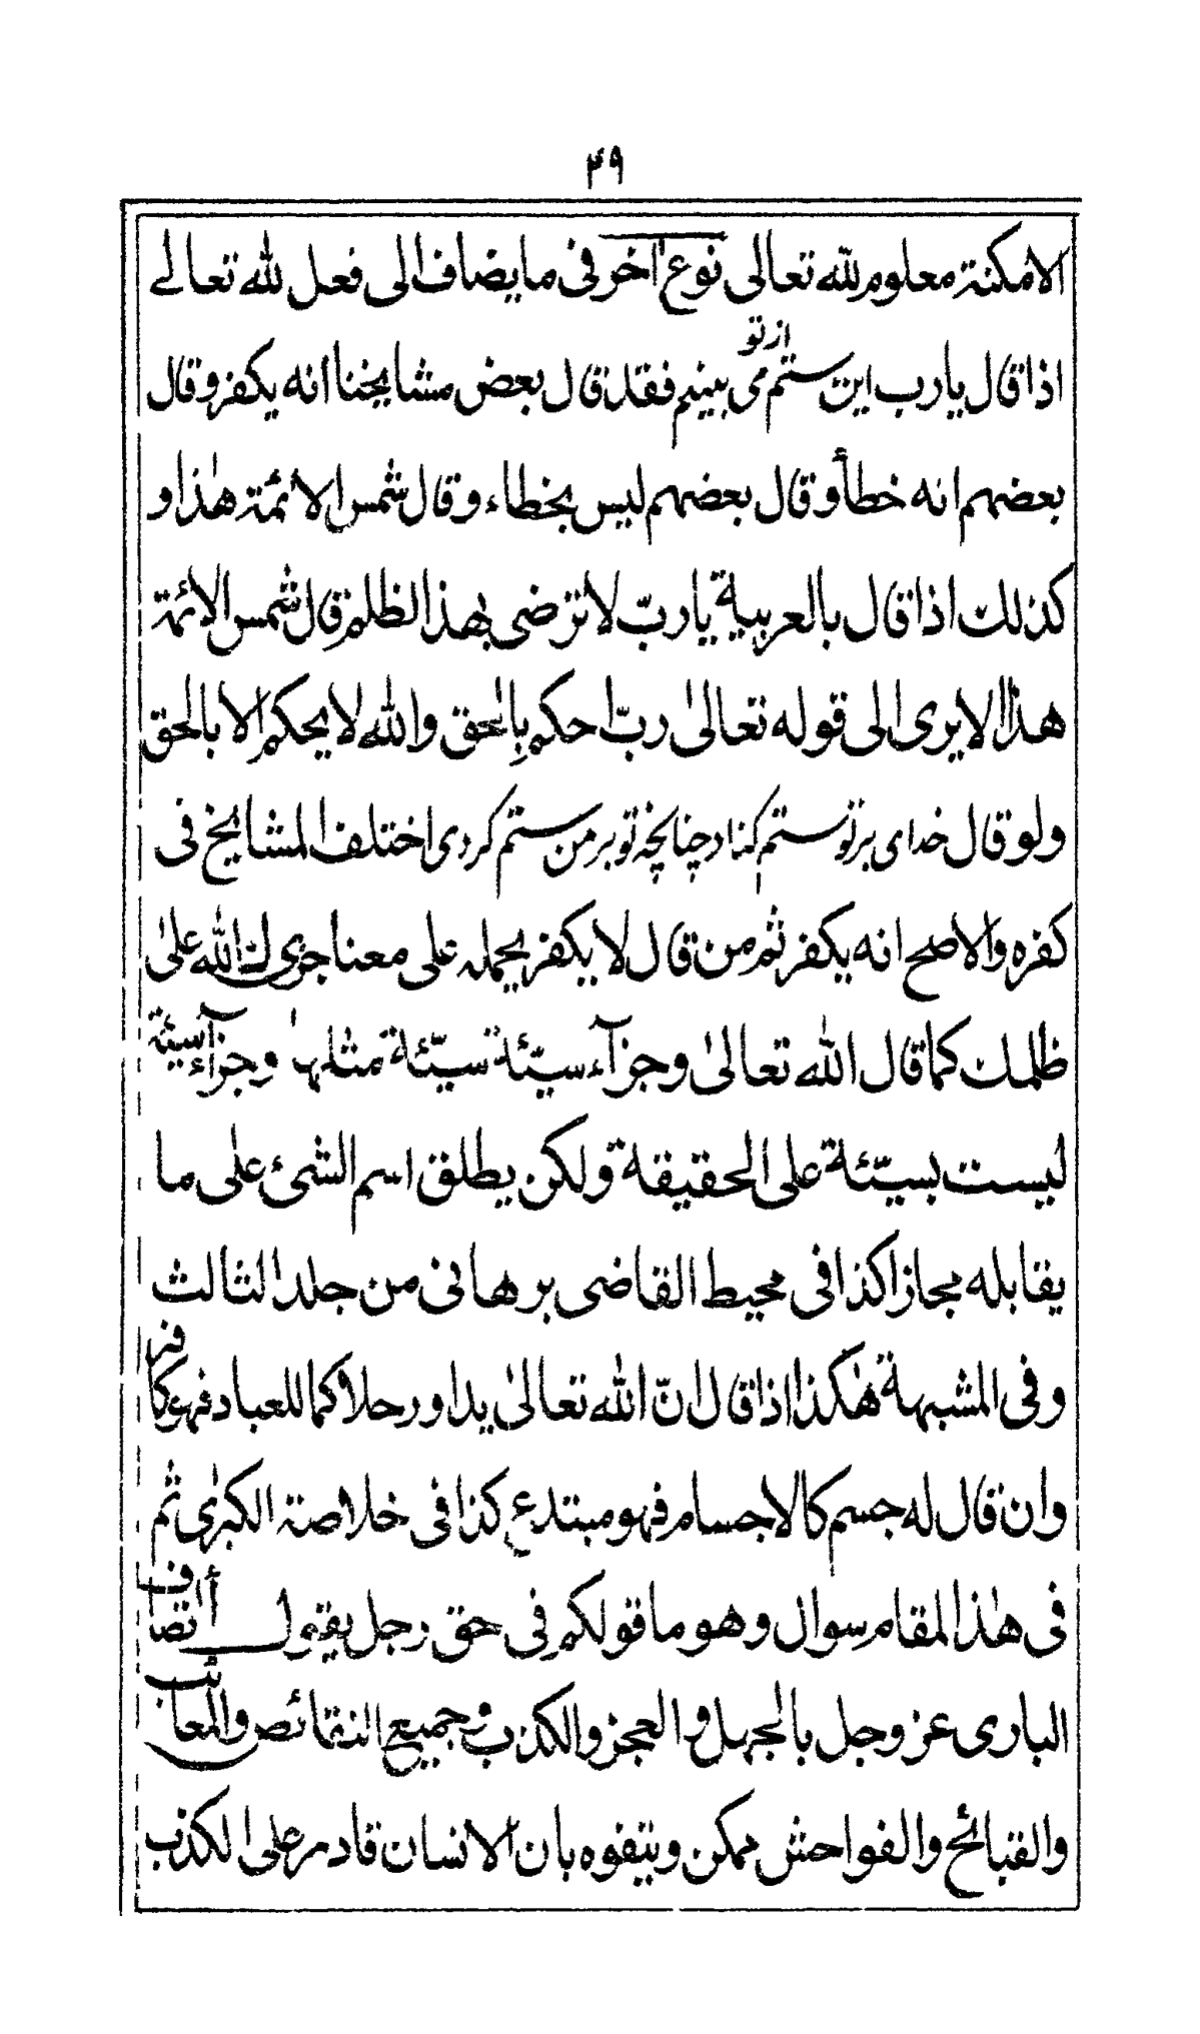 ۴۹
الامکنة معلوم لله تعالى نوع اٰخر فی ما یضاف الى فعل لله تعالے
اذا قال یا رب این ستم از تو می بینم فقد قال بعض مشایخنا انه یکفر وقال
بعضهم انه خطأ وقال بعضهم لیس بخطاء وقال شمس الائمة هٰذا و
کذلك اذا قال بالعربیة یا ربّ لا ترضی بهذ الظلم قال شمس الائمة
هذا الا یری الی قوله تعالیٰ ربّ احکم بِالحق والله لا یحکم الا بالحق
ولو قال خدای بر تو ستم کناد چنانچه تو بر من ستم کردی اختلف المشایخ فی
کفره والاصح انه یکفر ثم من قال لا یکفر یحمله علی معنا جزی ك الله علیٰ
ظلمك کما قال الله تعالیٰ وجزآء سیّئة سیّئة مثلها وجزآء سیئة
لیست بسیّئة علی الحقیقة ولکن یطلق اسم الشیء علی ما
یقابله مجازا کذا فی محیط القاضی برهانی من جلد الثالث
وفی المشبهة هٰکذا اذا قال انّ الله تعالیٰ یدا ورجلا کما للعباد فهو کافر
وان قال له جسم کالاجسام فهو مبتدع کذا فی خلاصة الکبرٰی ثم
فی هٰذا المقام سوال وهو ما قولکم فی حق رجل یقول أ اتصاف
الباری عز وجل بالجهل والعجز والکذب و جمیع النقائص والمعائب
والقبائح والفواحش ممکن ویتفوه بان الانسان قادر علی الکذب